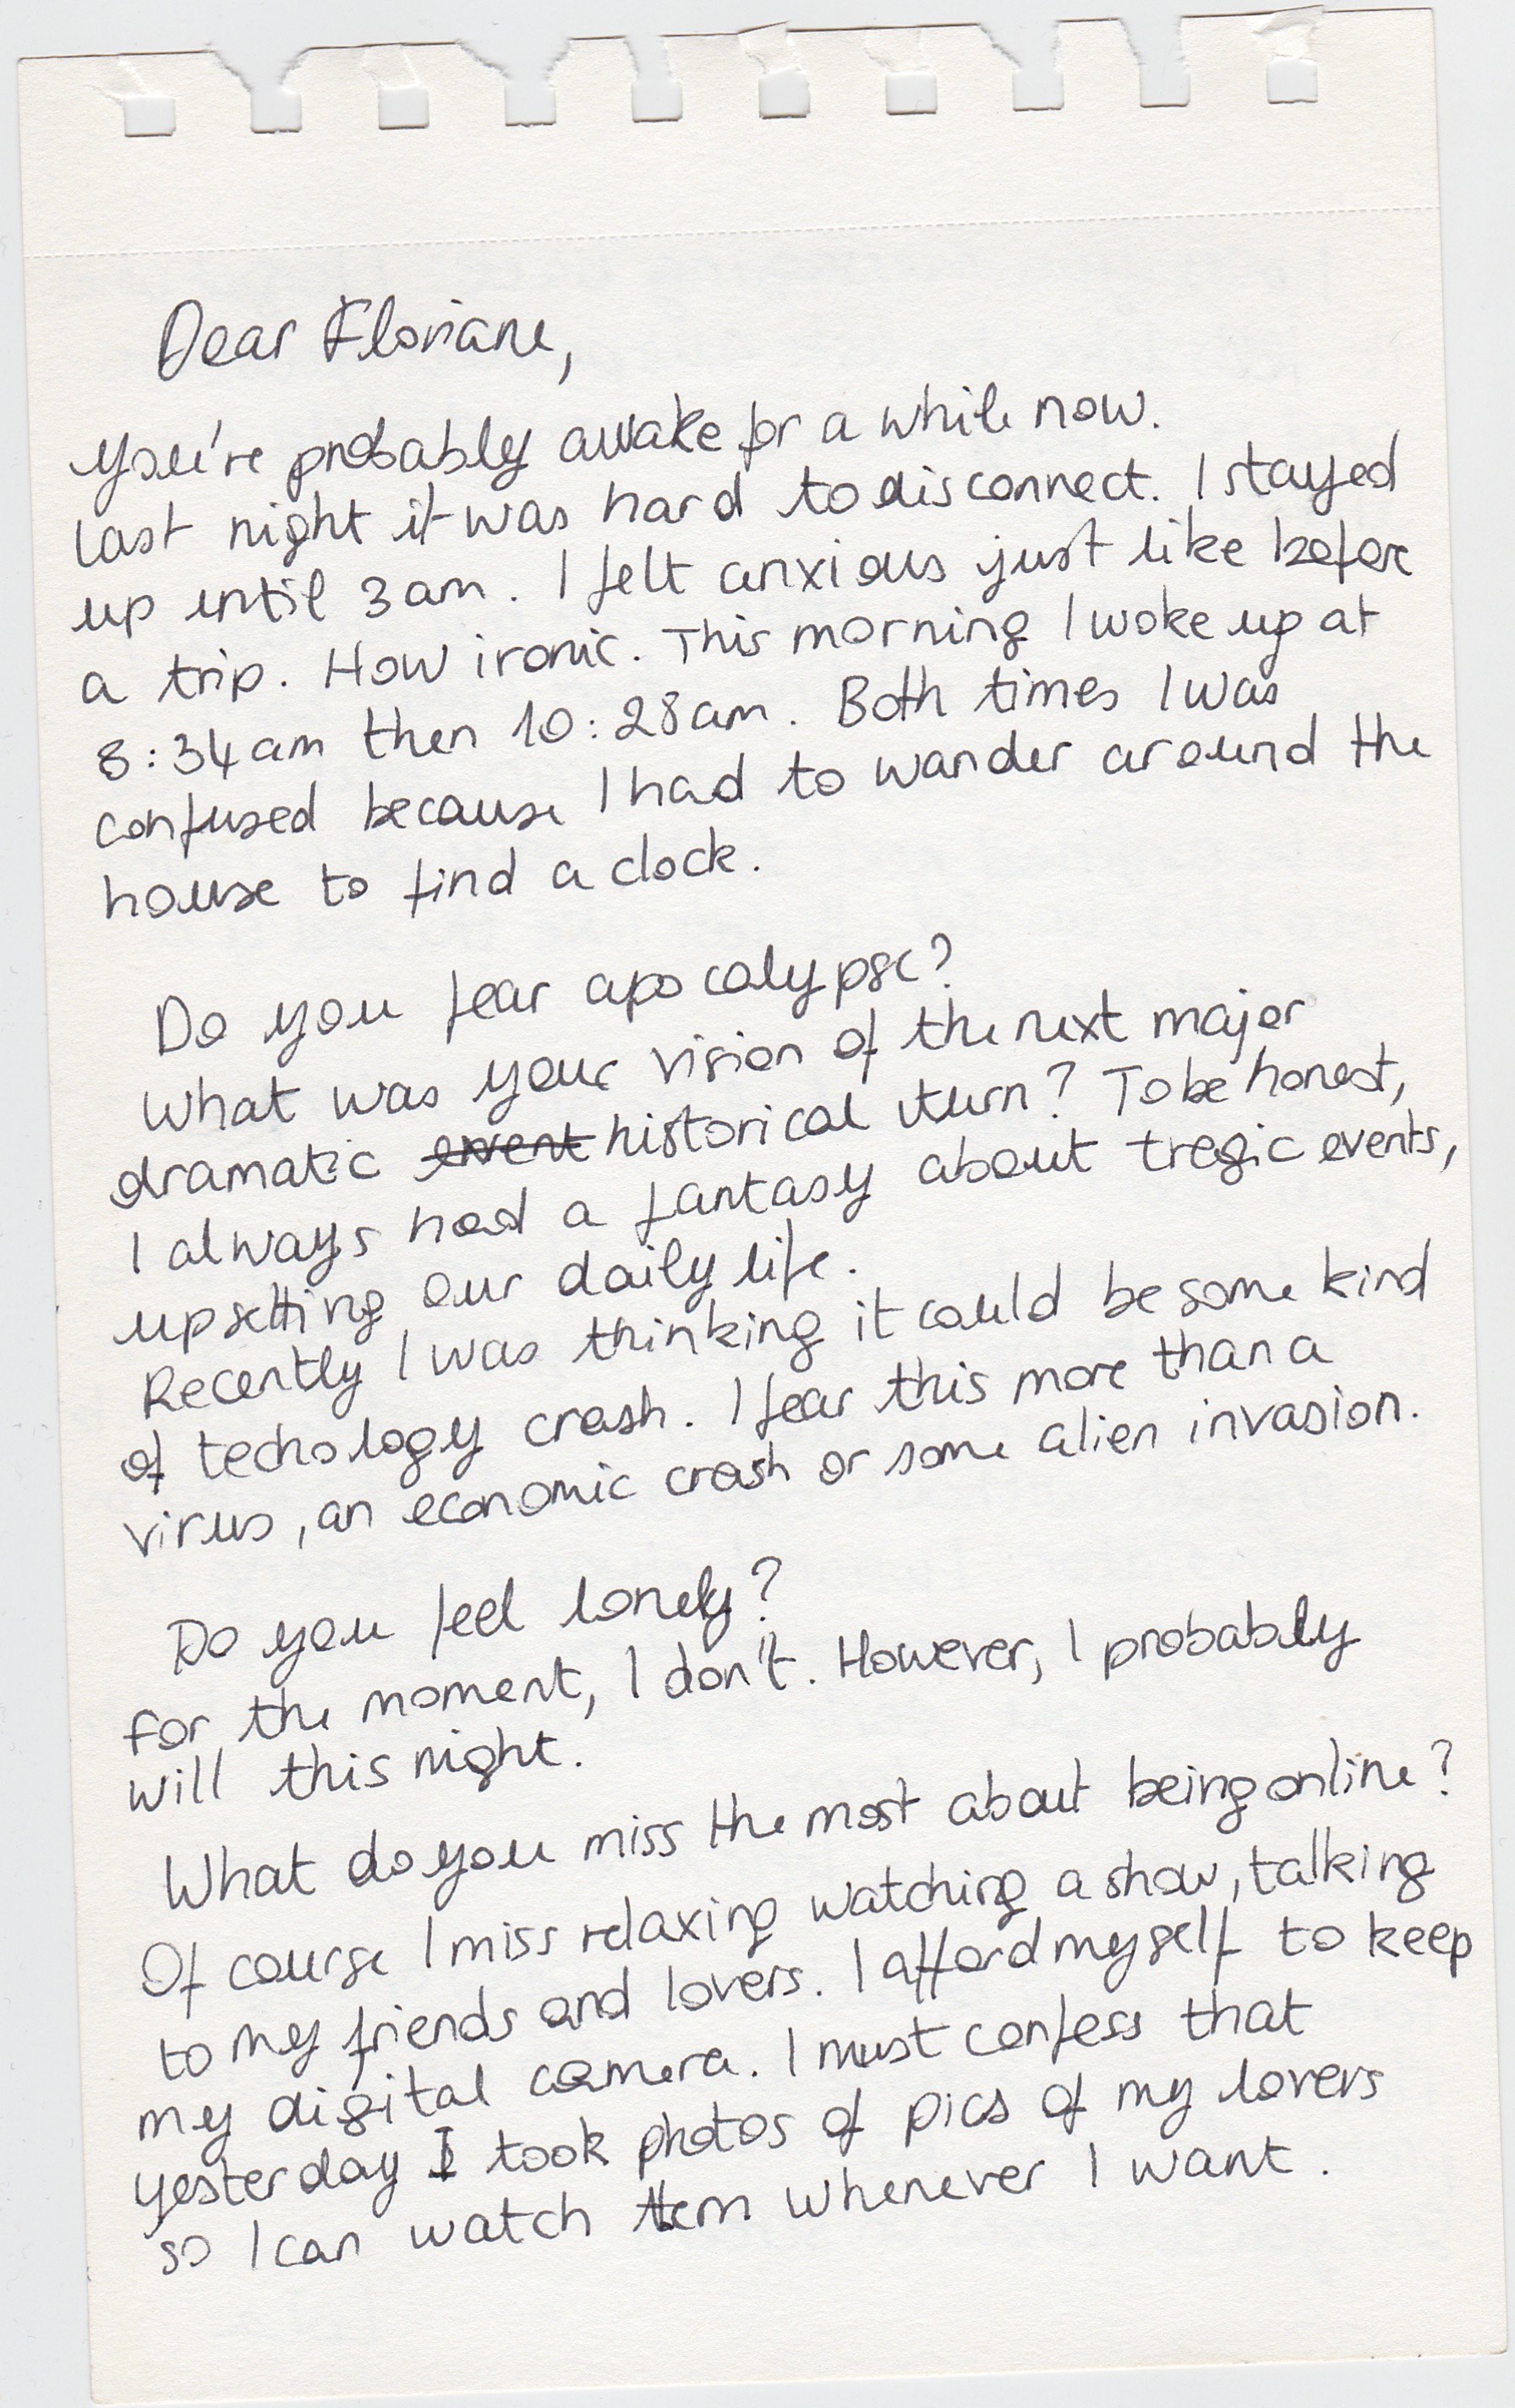 Dear Floriane,
You're probably awake for a while now.
Last night it was hard to disconnect. I stayed
up until 3am. I felt anxious just like before
a trip. How ironic. This morning I woke up at
8:34am then 10:28am. Both times I was
confused because I had to wander around the
house to find a clock.
Do you fear apocalypse?
What was your vision of the next major
dramatic event historical turn? To be honest,
I always had a fantasy about tragic events,
upsetting our daily life.
Recently I was thinking it could be some kind
of techology crash. I fear this more than a
virus, an economic crash or some alien invasion.
Do you feel lonely?
For the moment, I don't. However, I probably
will this night.
What do you miss the most about being online?
Of course I miss relaxing watching a show, talking
to my friends and lovers. I afford myself to keep
my digital camera. I must confess that
yesterday I took photos of pics of my lovers
so I can watch them whenever I want.